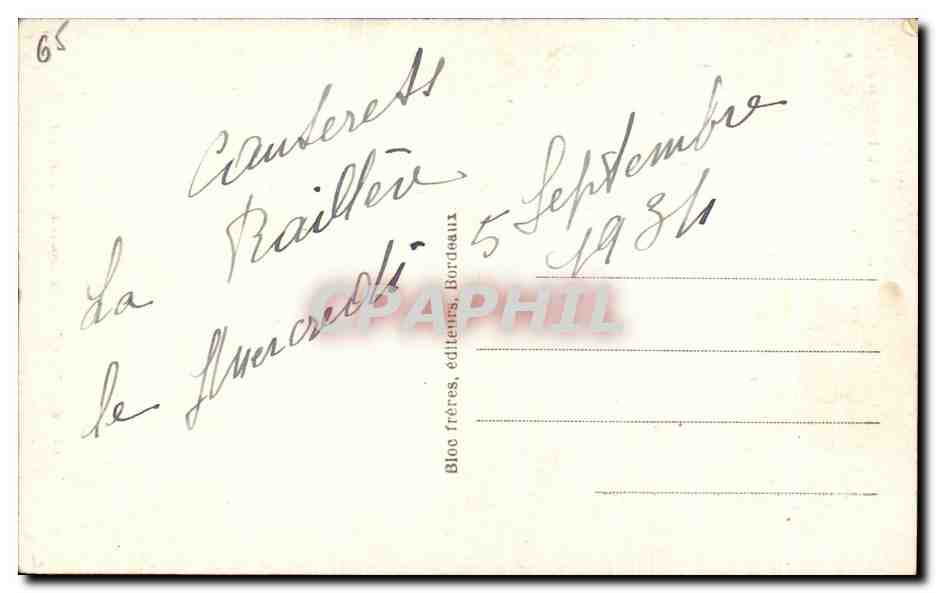 65
Cauterets
La Raillère
le Mercredi 5 Septembre
1934
Bloc frères, éditeurs, Bordeaux
CPAPHIL